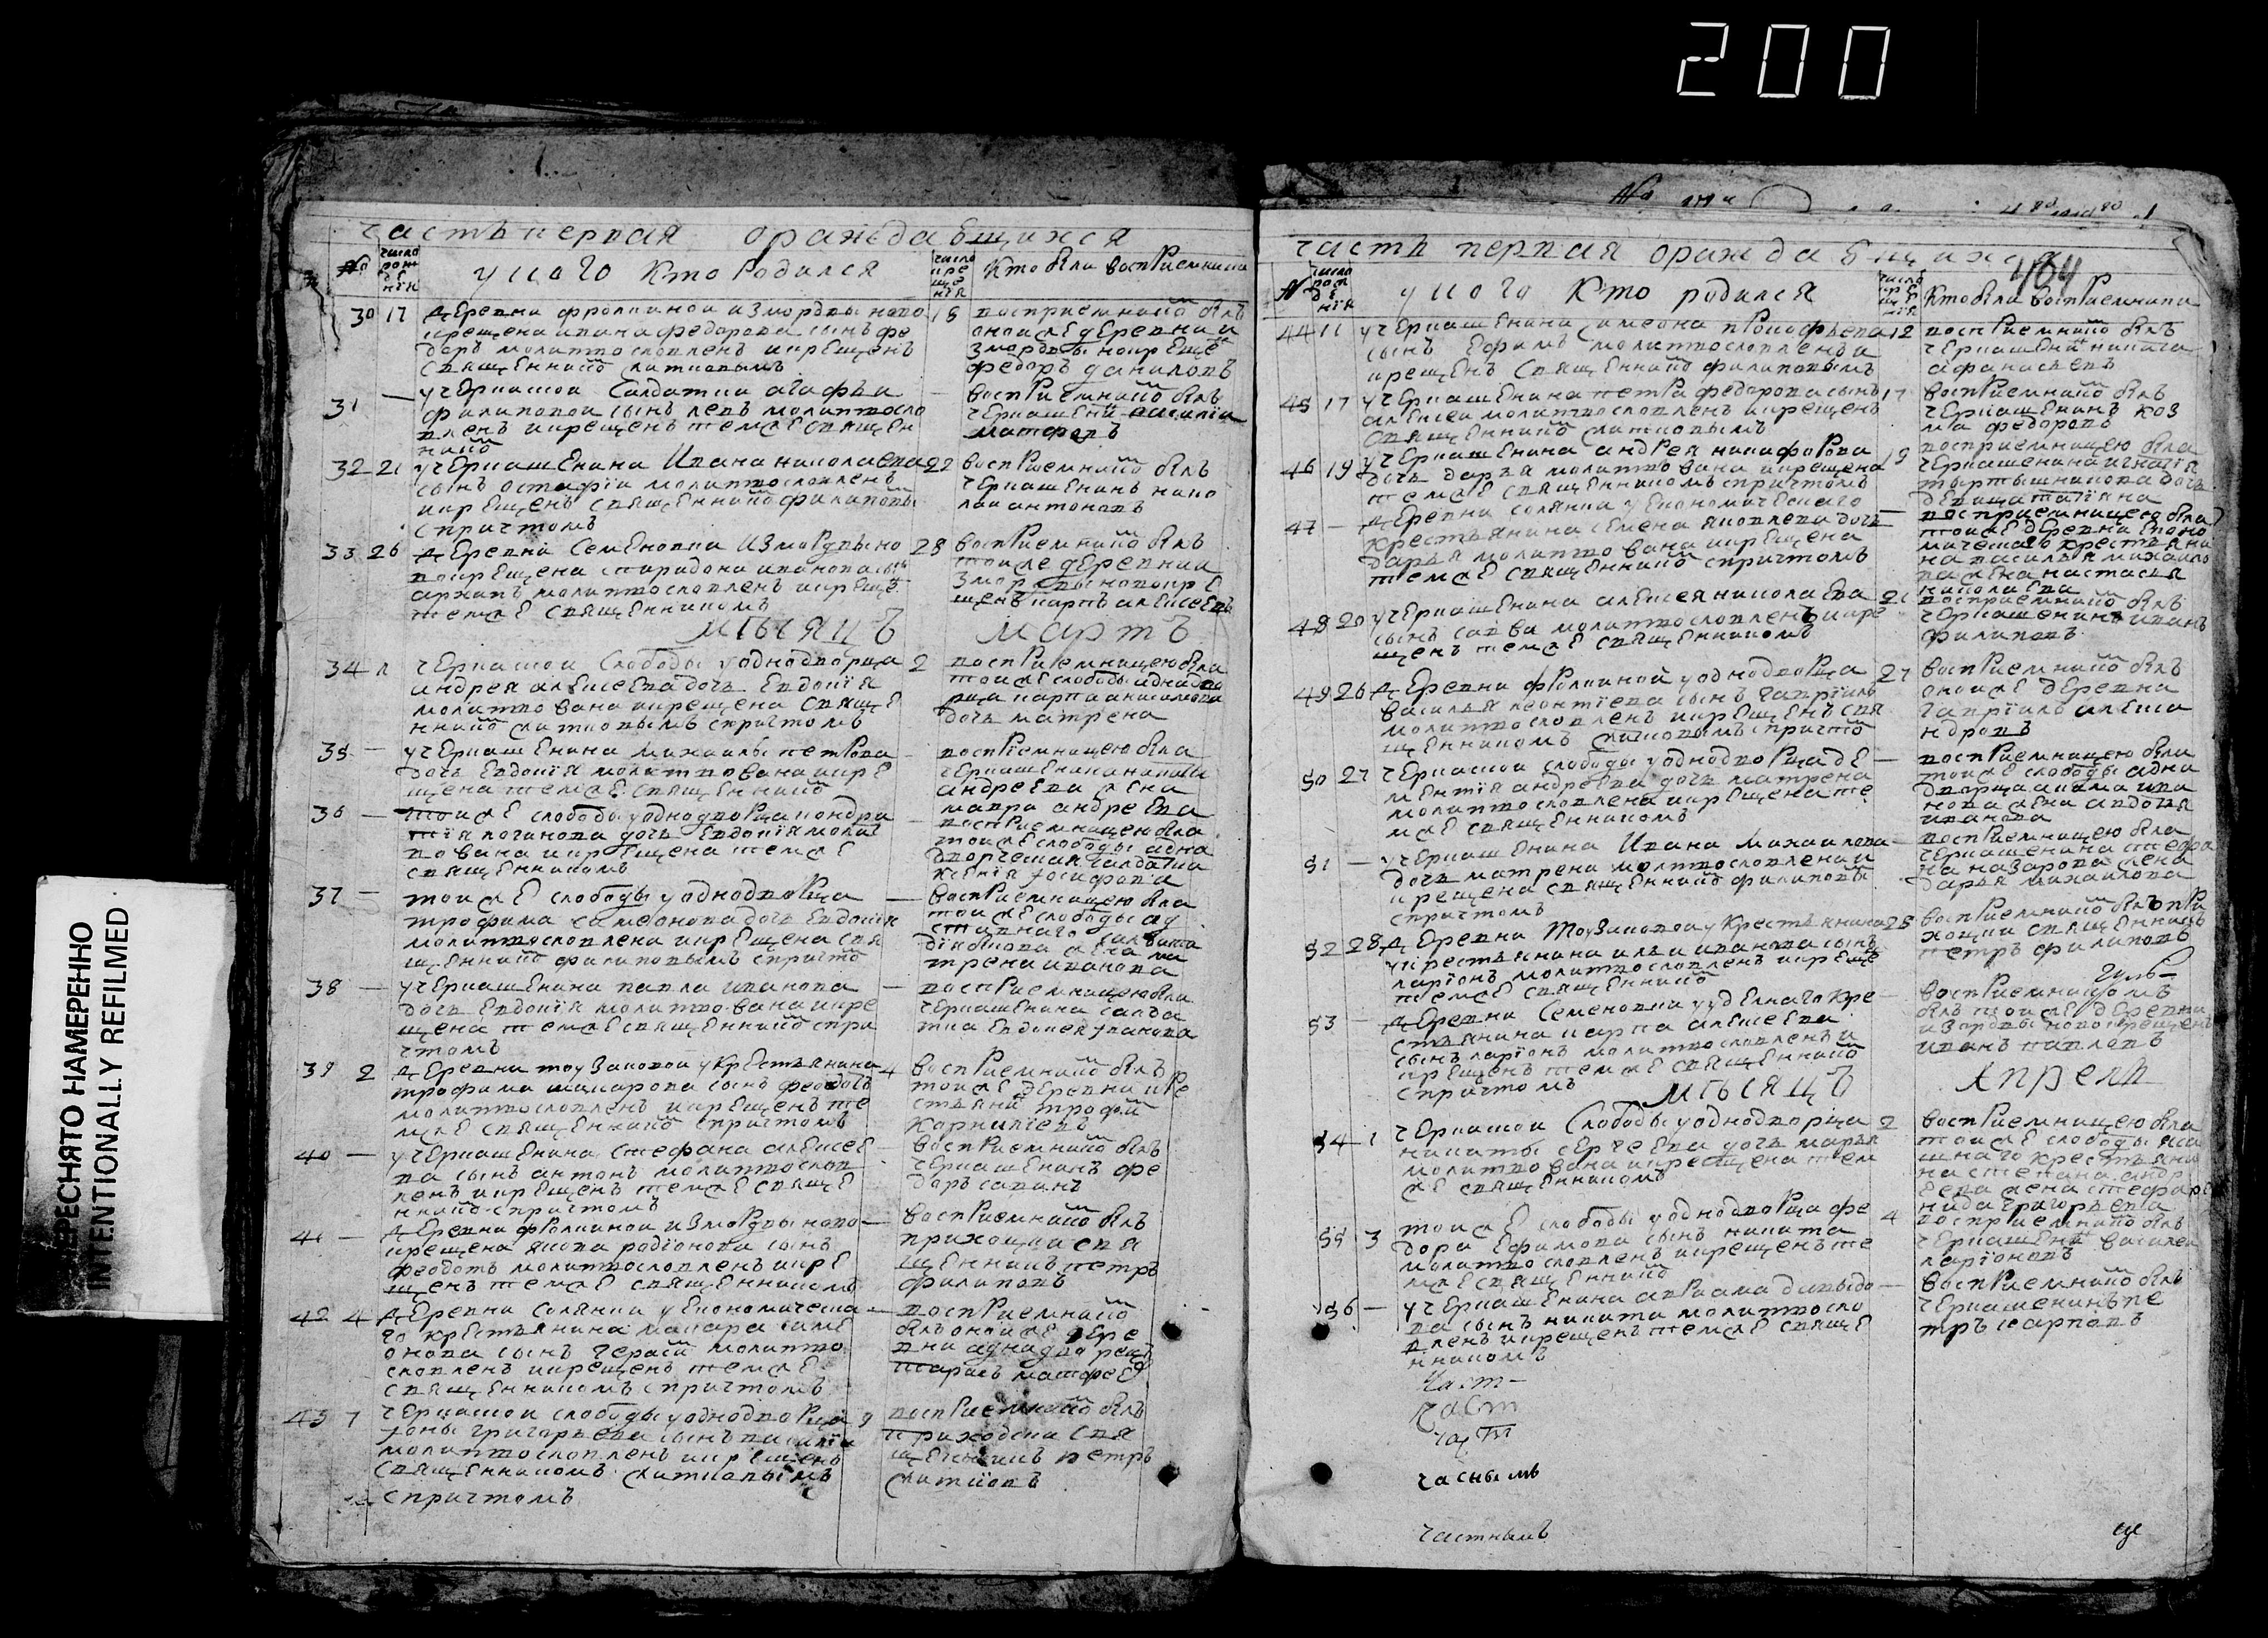 200
ПЕРЕСНЯТО НАМЕРЕННО
INTENTIONALLY REFILMED
часть первая ораждающихся
№
число рождения
у кого кто родился
число крещения
кто были восприемники
30 17 деревни фролкиной из мордвы ново 18
крещена ивана федорова сынъ фе
доръ молитвословленъ и крещенъ
священнико ситниковымъ
восприемнико былъ
оной же деревни и
з мордвы новкреще
федоръ даниловъ
31 — учеркаской салдатки агафьи —
филиповой сынъ левъ молитвосло
вленъ и крещенъ темже священ
нико
восприемнико былъ
матфевъ
32 21 учеркашенина ивана николаева 22
сынъ остафiи молитвословленъ
и крещенъ священнико филиповы
спричтомъ
восприемнико былъ
черкашенинъ нико
лаи антоновъ
33 26 деревни семеновки из мордвы но 28
вокрещена спиридона иванова сынъ
архипъ молитвословленъ и креще
темже священникомъ
восприемнико былъ
тоиже деревни и
з мордвы новокре
щенъ карпъ алексеевъ
мѣсяцъ мартъ
34 черкаской слободы уоднодворца 2
андрея алексеева дочь евдокiя
молитвована и крещена свяще
ннико ситниковымъ спричтомъ
восприемницею была
тоиже слободы однодво
рца карпа
дочь матрена
35 — учеркашенина михаилы петрова —
дочь евдокiя молитвована и кре
щена темже священнико
восприемницею была
черкашенина
андреева жена
мавра андреева
36 — тоиже слободы уоднодворца кондра —
тiя логинова дочь евдокiя молит
вована и крещена темже
священникомъ
восприемницею была
тоиже слободы одно
дворческая салдатка
ксенiя иосифова
37 — тоиже слободы уоднодворца —
трофима симеонова дочь евдокiя
молитвословлена и крещена свя
щеннико филиповымъ спричто
восприемницею была
тоиже слободы
жена ма
трена иванова
38 — учеркашенина павла иванова —
дочь евдокiя молитвована и кре
щена темже священнико спри
чтомъ
восприемницею была
черкашенина салда
тка евдокея иванова
39 2 деревни тоузаковой укрестьянина 4
трофима макарова сынъ феодотъ
молитвословленъ и крещенъ те
мже священнико спричтомъ
восприемнико былъ
тоиже деревни кре
стьяни трофи
карнилiевъ
40 — учеркашенина стефана алексее —
ва сынъ антонъ молитвослов
ленъ и крещенъ темже свяще
ннико спричтомъ
восприемнико былъ
черкашенинъ фе
доръ савинъ
41 — деревни фролкиной из мордвы ново —
крещена якова родiонова сынъ
феодотъ молитвословленъ и кре
щенъ темже священникомъ
восприемнико былъ
приходски свя
щенникъ петръ
филиповъ
42 4 деревни солянки уекономическа —
го крестьянина макара симе
онова сынъ герасй молитво
словленъ и крещенъ темже
священникомъ спричтомъ
восприемнико
былъ оноиже дере
вни однодворецъ
тарасъ матфеев
43 7 черкаской слободы уоднодворца 9
ионы григорьева сынъ василiи
молитвословленъ и крещенъ
священникомъ ситниковымъ
спричтомъ
восприемнико былъ
приходски свя
щенникъ петръ
ситниковъ
часть первая ораждающихся
464
№
число рождения
у кого кто родился
число крещения
кто были восприемники
44 11 учеркашенина симеона прокофьева 12
сынъ ефимъ молитвословленъ и
крещенъ священнико филиповымъ
восприемнико былъ
черкашени никита
афанасьевъ
45 17 учеркашенина петра федорова сынъ 17
алексеи молитвословленъ и крещенъ
священнико ситниковымъ
восприемнико былъ
черкашенинъ коз
ма федоровъ
46 19 учеркашенина андрея никифорова 19
дочь дарья молитвована и крещена
темже священникомъ спричтомъ
восприемницею была
черкашенина игнатiя
дочь
девица татiяна
47 — деревни солянки уекономическаго —
крестьянина семена яковлева дочь
дарья молитвована и крещена
темже священнико спричтомъ
восприемницею была
тоиже деревни еконо
мическаго крестьяни
на василья михаило
ва жена настасья
николаева
48 20 учеркашенина алексея николаева 21
сынъ савва молитвословленъ и кре
щенъ темже священникомъ
восприемнико былъ
черкашенинъ иванъ
филиповъ
49 26 деревни фролкиной уоднодворца 27
василья леонтiева сынъ гаврiилъ
молитвословленъ и крещенъ свя
щенникомъ ситниковымъ спричто
восприемнико былъ
оноиже деревни
гаврiило алекса
ндровъ
50 27 черкаской слободы уоднодворца де —
ментiя андреева дочь матрена
молитвословлена и крещена те
мже священникомъ
восприемницею была
тоиже слободы одно
дворца акима ива
нова жена авдотья
иванова
51 — учеркашенина ивана михаилова —
дочь матрена молитвословлена и
крещена священнико филиповы
спричтомъ
восприемницею была
черкашенина
назарова жена
дарья михаилова
52 28 деревни тоузаковой укрестьянина 28
укрестьянина ильи иванова сынъ
ларiонъ молитвословленъ и креще
темже священнико
восприемнико былъ при
хоцки священникъ
петръ филиповъ
53 — деревни семеновки уудельнаго кре —
стьянина карпа алексеева
сынъ ларiонъ молитвословленъ и
крещенъ темже священнико
спричтомъ
восприемникомъ
былъ тоиже деревни
из мордвы новокрещенъ
иванъ павловъ
мѣсяцъ апрель
54 1 черкаской слободы уоднодворца 2
никиты сергеева дочь марья
молитвована и крещена тем
же священникомъ
восприемницею была
тоиже слободы яса
шнаго крестьяни
на степана андр
еева жена стефани
нида григорьева
55 3 тоиже слободы уоднодворца фе 4
дора ефимова сынъ никита
молитвословленъ и крещенъ те
мже священнико
восприемнико былъ
черкашени василеи
ларiоновъ
56 — учеркашенина авраама давыдо —
ва сынъ никита молитвосло
вленъ и крещенъ темже свяще
нникомъ
восприемнико былъ
черкашенинъ пе
тръ карповъ
част
част
част
часнымъ
частнымъ